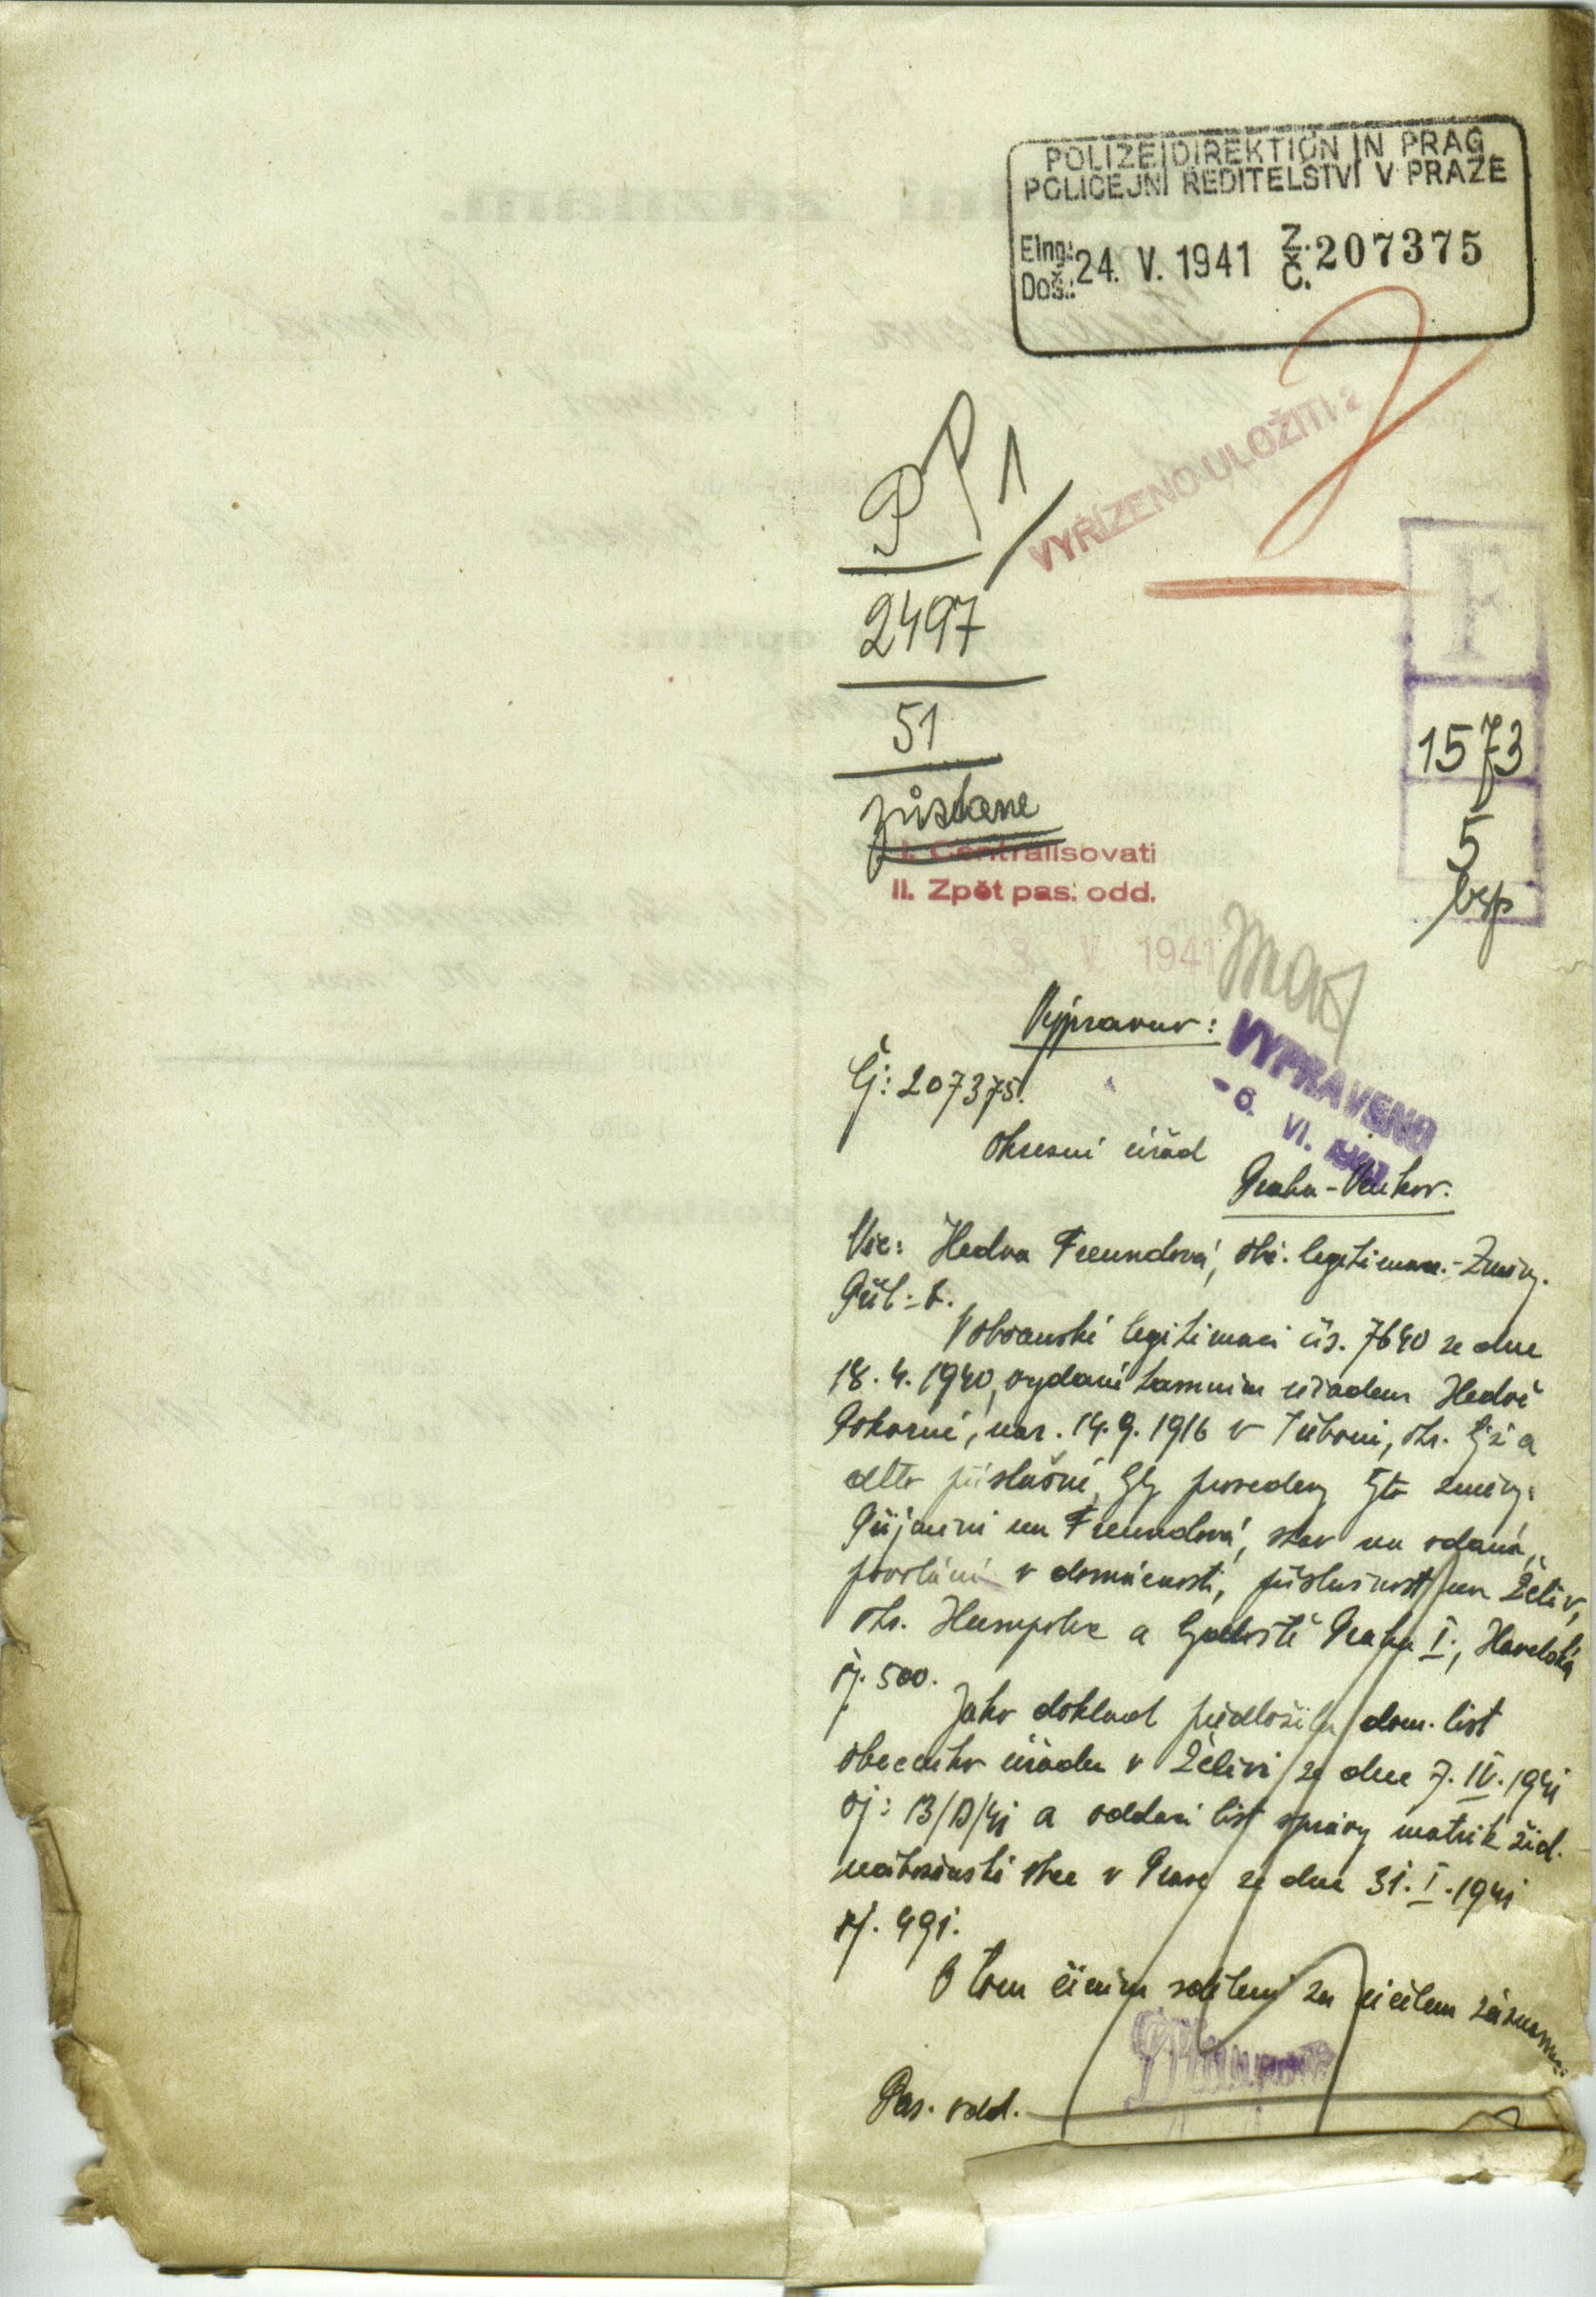 POLIZEIDIREKTION IN PRAG
POLICEJNÍ ŘEDITELSTVÍ V PRAZE
Eing:
Doš.: 24. V. 1941 Z. Č. 207375
VYŘÍZENO-ULOŽITI 2
PP 1
2497
51
zůstane
I. Centralisovati
II. Zpět pas. odd.
F
1573
5
V 1941
Výpravna:
VYPRAVENO
- 6. VI.
Čj: 207375.
Okresní úřad
Praha-Venkov.
Věc: Hedva Freundová, obč. legitimace.-Změny.
Příl: 
V občanské legitimaci čís. 7640 ze dne
18. 4. 1940, vydané tamním úřadem Hedvě
Pokorné, nar. 14. 9. 1916 v okr. a
příslušné, byly provedeny tyto změny:
Příjmení na Freundová, stav na vdaná,
povolání v domácnosti, příslušnost na Želiv,
okr. Humpolec a bydliště Praha I., Havelská
čj. 500.
Jako doklad předložila dom. list
obecního úřadu v Želivi ze dne 7. IV. 1941
čj: 13/D/41 a oddací list správy matrik žid.
náboženské obce v Praze ze dne 31. I. 1941
čj. 491.
O tom činím sdělení za účelem záznamu.
Pas. odd.